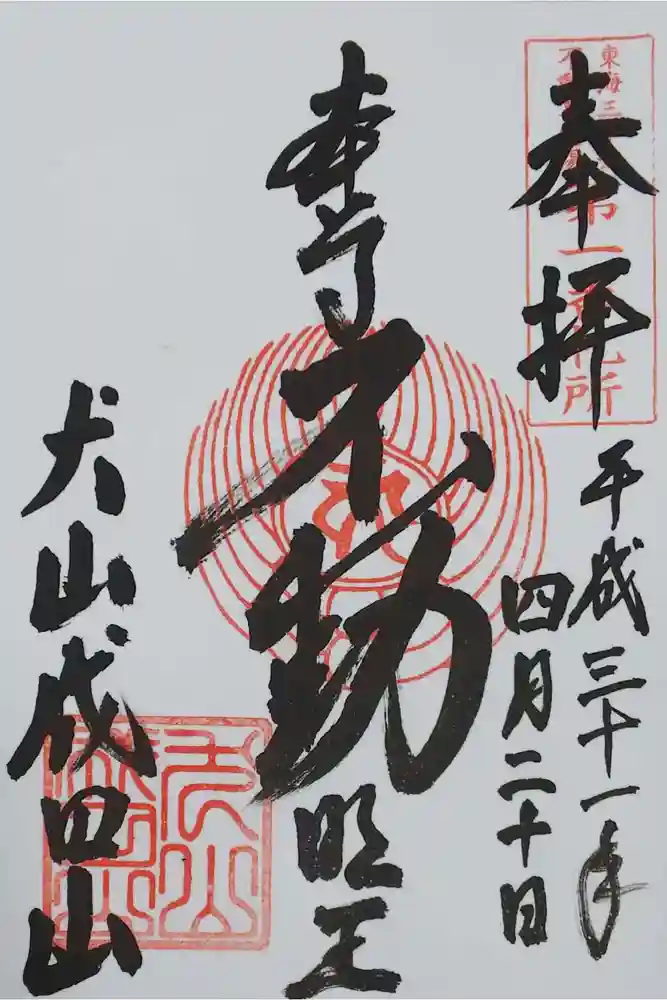 東海三
第一番札所
奉拝
平成三十一年
四月二十日
本尊不動明王
犬山成田山